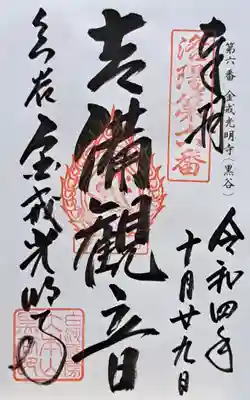 第六番 金戒光明寺(黒谷)
奉拝
洛陽第六番
令和四年
十月廿九日
吉備観音
金戒光明寺